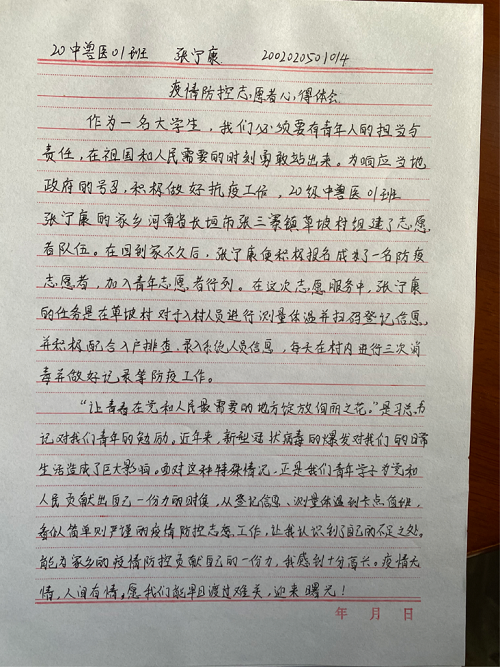 20中兽医01班 张宁康 2002020501014
疫情防控志愿者心得体会
作为一名大学生，我们必须要有青年人的担当与
责任，在祖国和人民需要的时刻勇敢站出来。为响应当地
政府的号召，积极做好抗疫工作，20级中兽医01班
张宁康的家乡河南省长垣市张三寨镇草坡村组建了志愿
者队伍。在回到家不久后，张宁康便积极报名成为了一名防疫
志愿者，加入青年志愿者行列。在这次志愿服务中，张宁康
的任务是在草坡村对于入村人员进行测量体温并扫码登记信息，
并积极配合入户排查、录入系统人员信息，每天在村内进行三次消
毒并做好记录等防疫工作。
“让青春在党和人民最需要的地方绽放绚丽之花。”是习总书
记对我们青年的勉励。近年来，新型冠状病毒的爆发对我们的日常
生活造成了巨大影响。面对这种特殊情况，正是我们青年学子为党和
人民贡献出自己一份力的时候，从登记信息、测量体温到卡点值班，
看似简单则严谨的疫情防控志愿工作，让我认识到了自己的不足之处。
能为家乡的疫情防控贡献自己的一份力，我感到十分高兴。疫情无
情，人间有情。愿我们能早日渡过难关，迎来曙光！
年 月 日